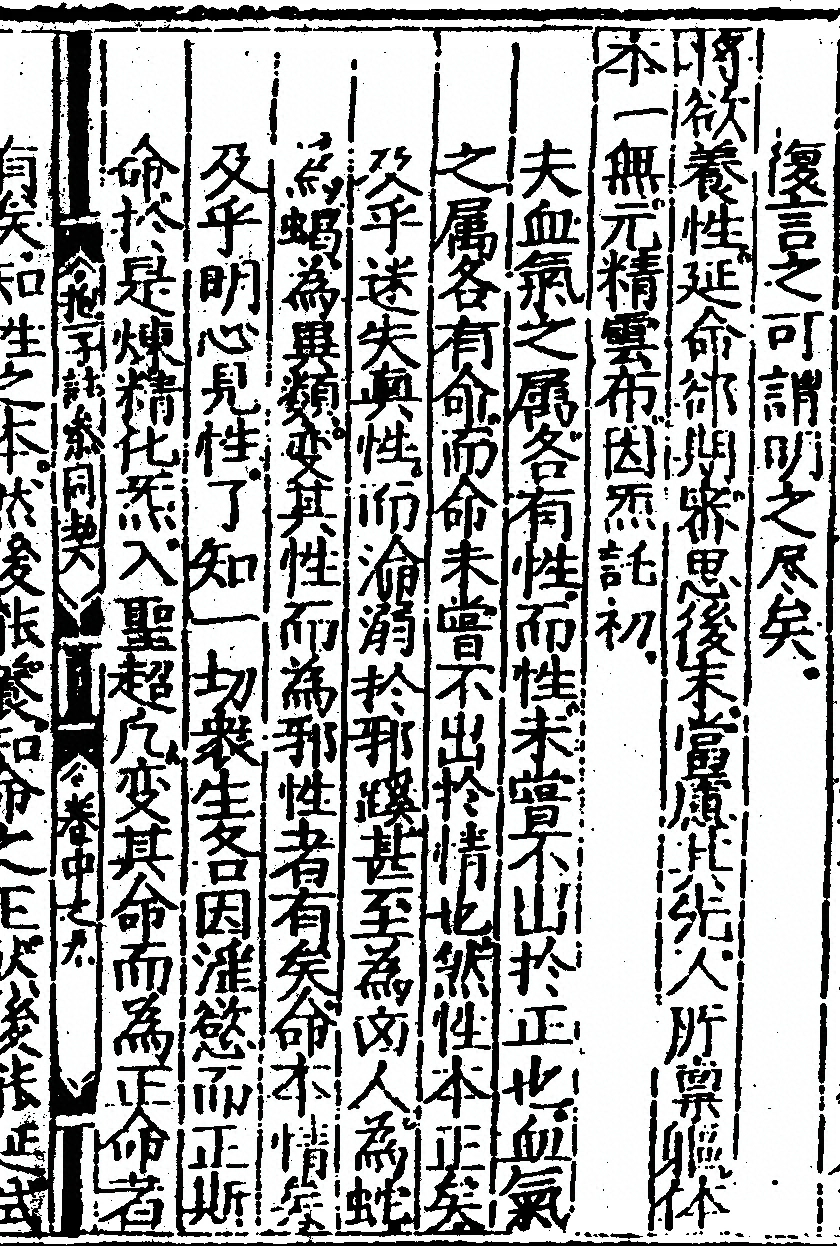 復言之可謂明之尽矣
將欲養性延命郤期審思後末當慮其先人所稟軀体
本一無元精雲布因炁託初
夫血氣之属各有性而性未嘗不出於正也血氣
之属各有命而命未嘗不出於情也然性本正矣
及乎迷失真性而淪溺於邪蹊甚至為凶人為蛇
為蝎為異類变其性而為邪性者有矣命本情矣
及乎明心見性了知一切衆生各因滛慾而正斯
命於是煉精化炁入聖超凡变其命而為正命者
抱一子註参同契 卷中之
有矣知性之本然後能養知命之正然後能正